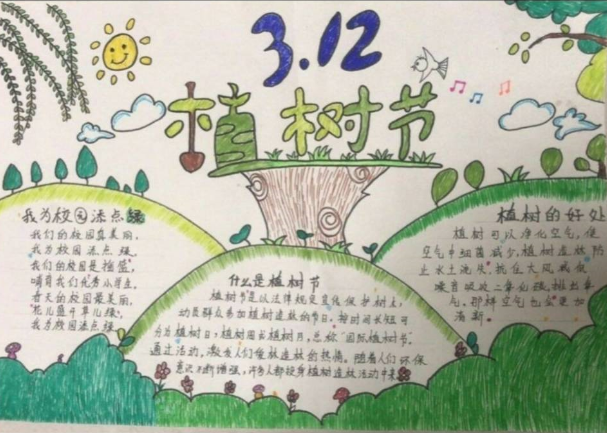 3.12
植树节
我为校园添点绿
我们的校园真美丽,
我为校园添点绿。
我们的校园是摇篮,
哺育我们茁壮成长,
春天的校园最美丽,
花儿盛开草儿绿,
我为校园添点绿。
什么是植树节
植树节是以法律规定宣传保护树木,
动员群众参加植树造林的节日。按时间长短可
分为植树日,植树周和植树月,总称"国际植树节"。
通过活动,激发人们植林造林的热情。随着人们环保
意识不断增强,许多人都投身植树造林活动中来
植树的好处
植树可以净化空气,使
空气中细菌减少,植树造林防
止水土流失,抵住大风减低
噪音吸收二氧化碳,排出氧
气,那样空气也会更加
清新。